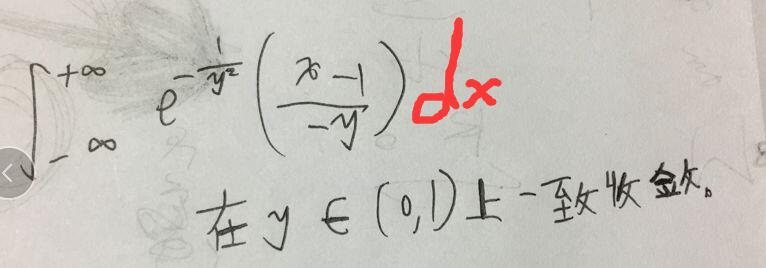 ∫_{-∞}^{+∞} e^{-\frac{1}{y^2}} \left( \frac{x-1}{-y} \right) dx
在 y ∈ (0,1) 上一致收敛。